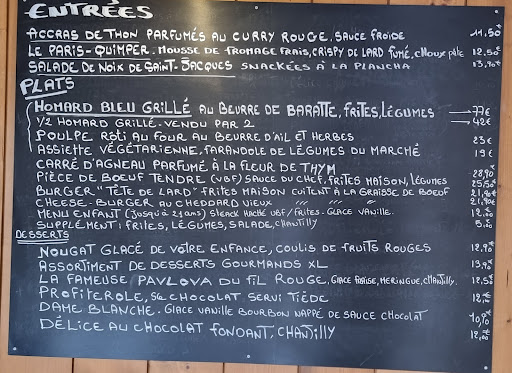 ENTRÉES
ACCRAS DE THON PARFUMÉS AU CURRY ROUGE, SAUCE FROIDE 11,50€
LE PARIS-QUIMPER. MOUSSE DE FROMAGE FRAIS, CRISPY DE LARD FUMÉ, CHOUX 12,50€
SALADE DE NOIX DE SAINT-JACQUES SNACKÉES À LA PLANCHA 13,90€
PLATS
HOMARD BLEU GRILLÉ AU BEURRE DE BARATTE, FRITES, LÉGUMES 77€
1/2 HOMARD GRILLÉ - VENDU PAR 2 42€
POULPE RÔTI AU FOUR AU BEURRE D'AIL ET HERBES 23€
ASSIETTE VÉGÉTARIENNE, FARANDOLE DE LÉGUMES DU MARCHÉ 19€
CARRÉ D'AGNEAU PARFUMÉ À LA FLEUR DE THYM 28,90€
PIÈCE DE BOEUF TENDRE (VBF) SAUCE DU CHEF, FRITES MAISON, LÉGUMES 25,50€
BURGER "TÊTE DE LARD" FRITES MAISON CUITENT À LA GRAISSE DE BOEUF 21,90€
CHEESE-BURGER AU CHEDDARD VIEUX " " " 21,90€
MENU ENFANT (JUSQU'À 21ANS) STEACK HACHÉ VBF/FRITES - GLACE VANILLE.
SUPPLÉMENT: FRITES, LÉGUMES, SALADE, CHANTILLY
DESSERTS
NOUGAT GLACÉ DE VOTRE ENFANCE, COULIS DE FRUITS ROUGES 12,90€
ASSORTIMENT DE DESSERTS GOURMANDS XL 13,90€
LA FAMEUSE PAVLOVA DU FIL ROUGE, GLACE FRAISE, MERINGUE, CHANTILLY. 12,50€
PROFITEROLE, CHOCOLAT SERVI TIÈDE
DAME BLANCHE. GLACE VANILLE BOURBON NAPPÉ DE SAUCE CHOCOLAT 10,90
DÉLICE AU CHOCOLAT FONDANT, CHANTILLY